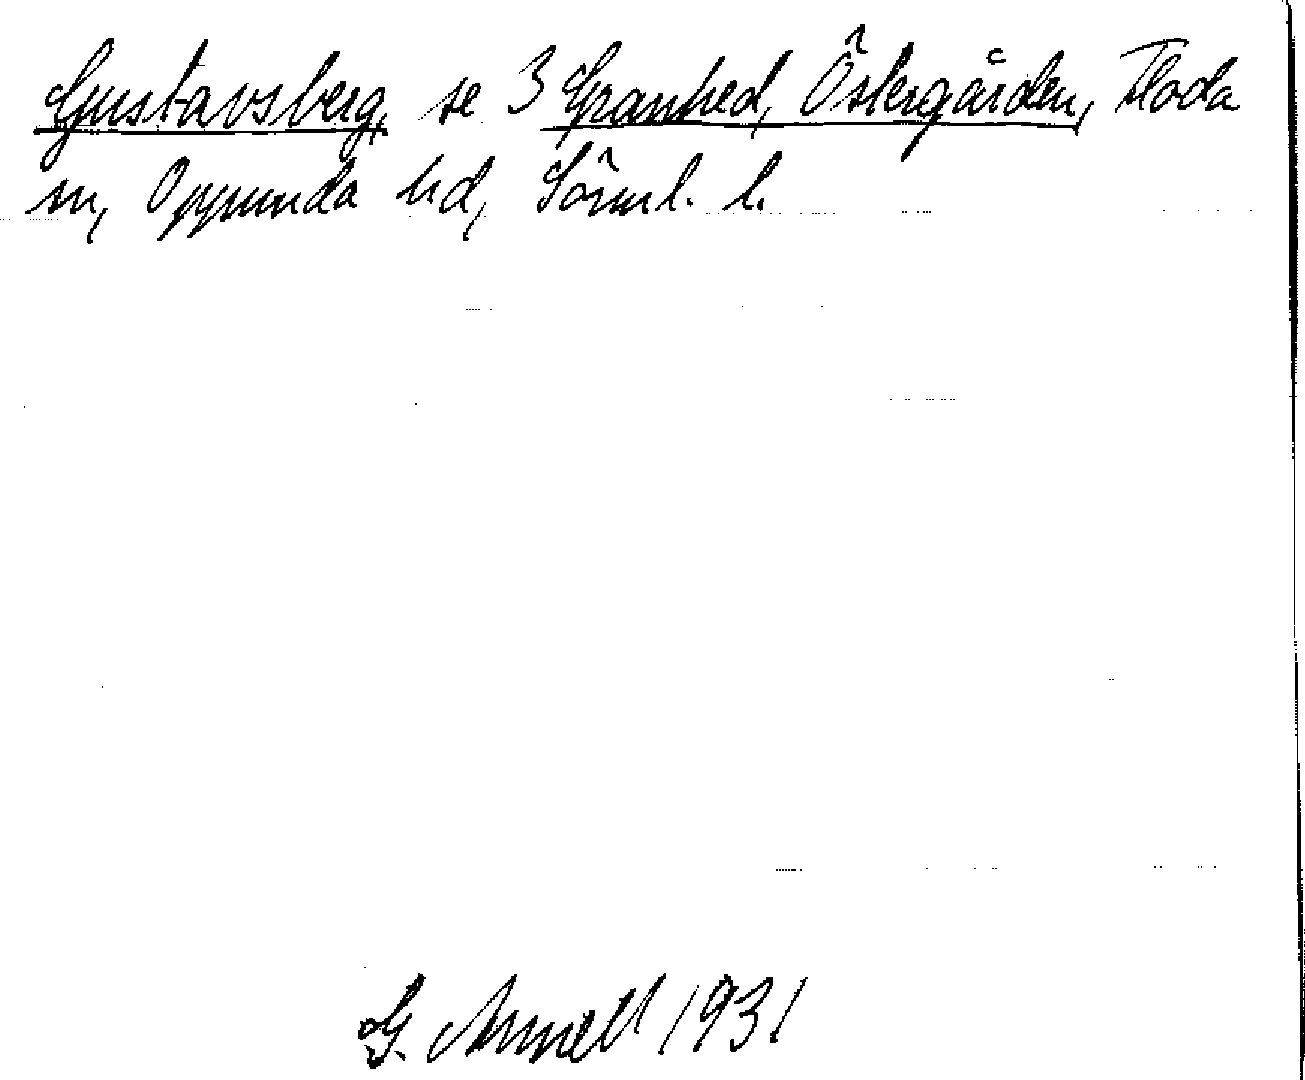 Gustavsberg, se 3 Granhed, Östergården, Floda
sn, Oppunda hd, Sörml. l.
G. Arnell 1931